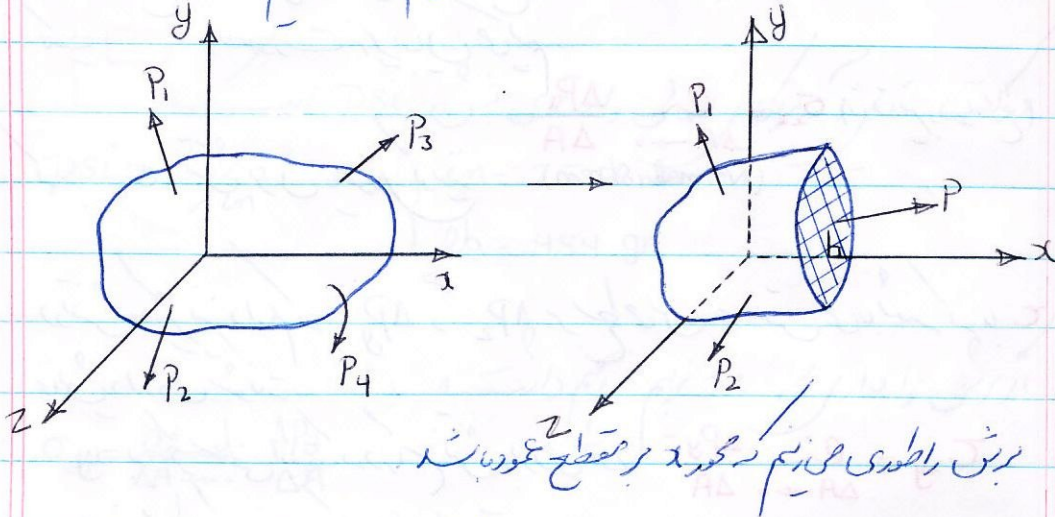 y y
P₁ P₃ P₁ P
x x
P₂ P₄ P₂
Z Z
برش را طوری می‌زنیم که محور x بر مقطع عمود باشد